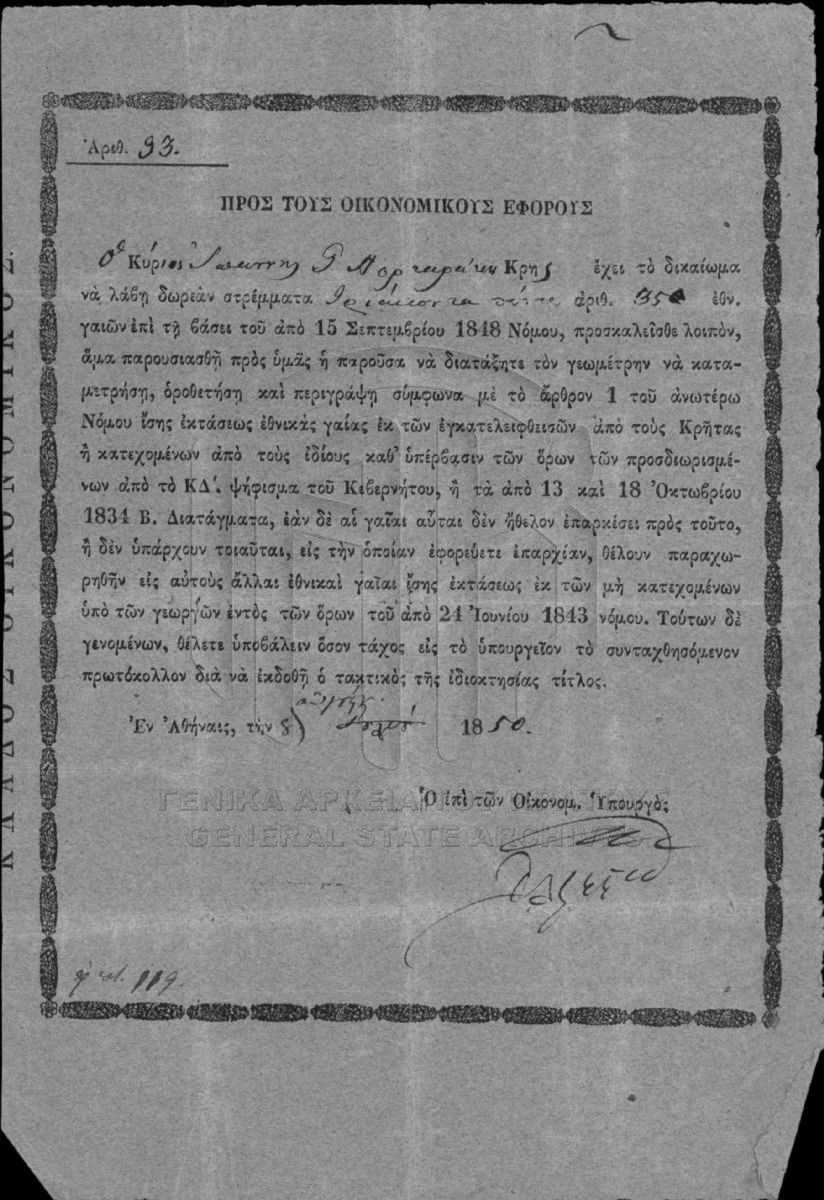 Ἀριθ. 93.
ΠΡΟΣ ΤΟΥΣ ΟΙΚΟΝΟΜΙΚΟΥΣ ΕΦΟΡΟΥΣ
Ὁ Κύριος Ἰωάννης Κρης ἔχει τὸ δικαίωμα
νὰ λάβῃ δωρεὰν στρέμματα τριάκοντα πέντε ἀριθ. 35 ἐθν.
γαιῶν ἐπὶ τῇ βάσει τοῦ ἀπὸ 15 Σεπτεμβρίου 1848 Νόμου, προσκαλεῖσθε λοιπὸν,
ἅμα παρουσιασθῇ πρὸς ὑμᾶς ἡ παροῦσα νὰ διατάξητε τὸν γεωμέτρην νὰ κατα-
μετρήσῃ, ὁροθετήσῃ καὶ περιγράψῃ σύμφωνα μὲ τὸ ἄρθρον 1 τοῦ ἀνωτέρω
Νόμου ἴσης ἐκτάσεως ἐθνικὰς γαίας ἐκ τῶν ἐγκατελειφθεισῶν ἀπὸ τοὺς Κρῆτας
ἢ κατεχομένων ἀπὸ τοὺς ἰδίους καθ' ὑπέρβασιν τῶν ὅρων τῶν προσδιωρισμέ-
νων ἀπὸ τὸ ΚΔ΄. ψήφισμα τοῦ Κυβερνήτου, ἢ τὰ ἀπὸ 13 καὶ 18 Ὀκτωβρίου
1834 Β. Διατάγματα, ἐὰν δὲ αἱ γαῖαι αὗται δὲν ἤθελον ἐπαρκέσει πρὸς τοῦτο,
ἢ δὲν ὑπάρχουν τοιαῦται, εἰς τὴν ὁποίαν ἐφορεύετε ἐπαρχίαν, θέλουν παραχω-
ρηθῆν εἰς αὐτοὺς ἄλλαι ἐθνικαὶ γαῖαι ἴσης ἐκτάσεως ἐκ τῶν μὴ κατεχομένων
ὑπὸ τῶν γεωργῶν ἐντὸς τῶν ὅρων τοῦ ἀπὸ 24 Ἰουνίου 1843 νόμου. Τούτων δὲ
γενομένων, θέλετε ὑποβάλειν ὅσον τάχος εἰς τὸ ὑπουργεῖον τὸ συνταχθησόμενον
πρωτόκολλον διὰ νὰ ἐκδοθῇ ὁ τακτικὸς τῆς ἰδιοκτησίας τίτλος.
Ἐν Ἀθήναις, τὴν 8 1850.
Ὁ ἐπὶ τῶν Οἰκονομ. Ὑπουργὸς
ΓΕΝΙΚΑ ΑΡΧΕΙΑ ΤΟΥ ΚΡΑΤΟΥΣ
GENERAL STATE ARCHIVES
119.
ΚΛΑΔΟΣ ΟΙΚΟΝΟΜΙΚΟΣ.